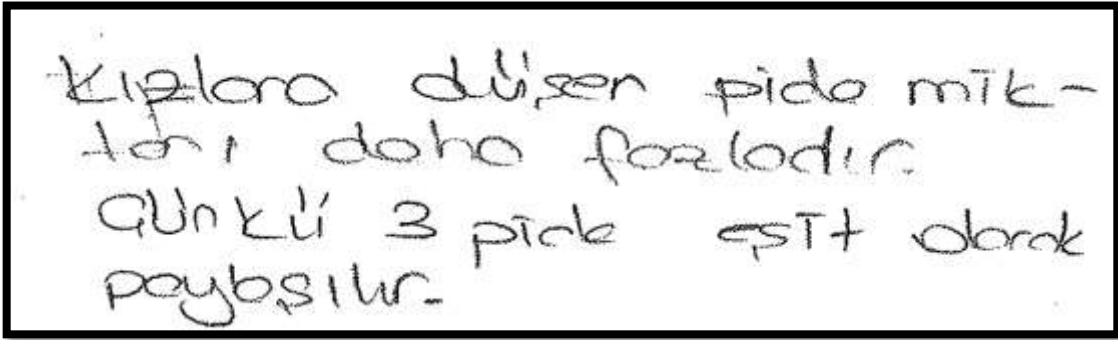 Kızlara düşen pide mik-
tarı daha fazladır.
Çünkü 3 pide eşit olarak
paylaşılır.